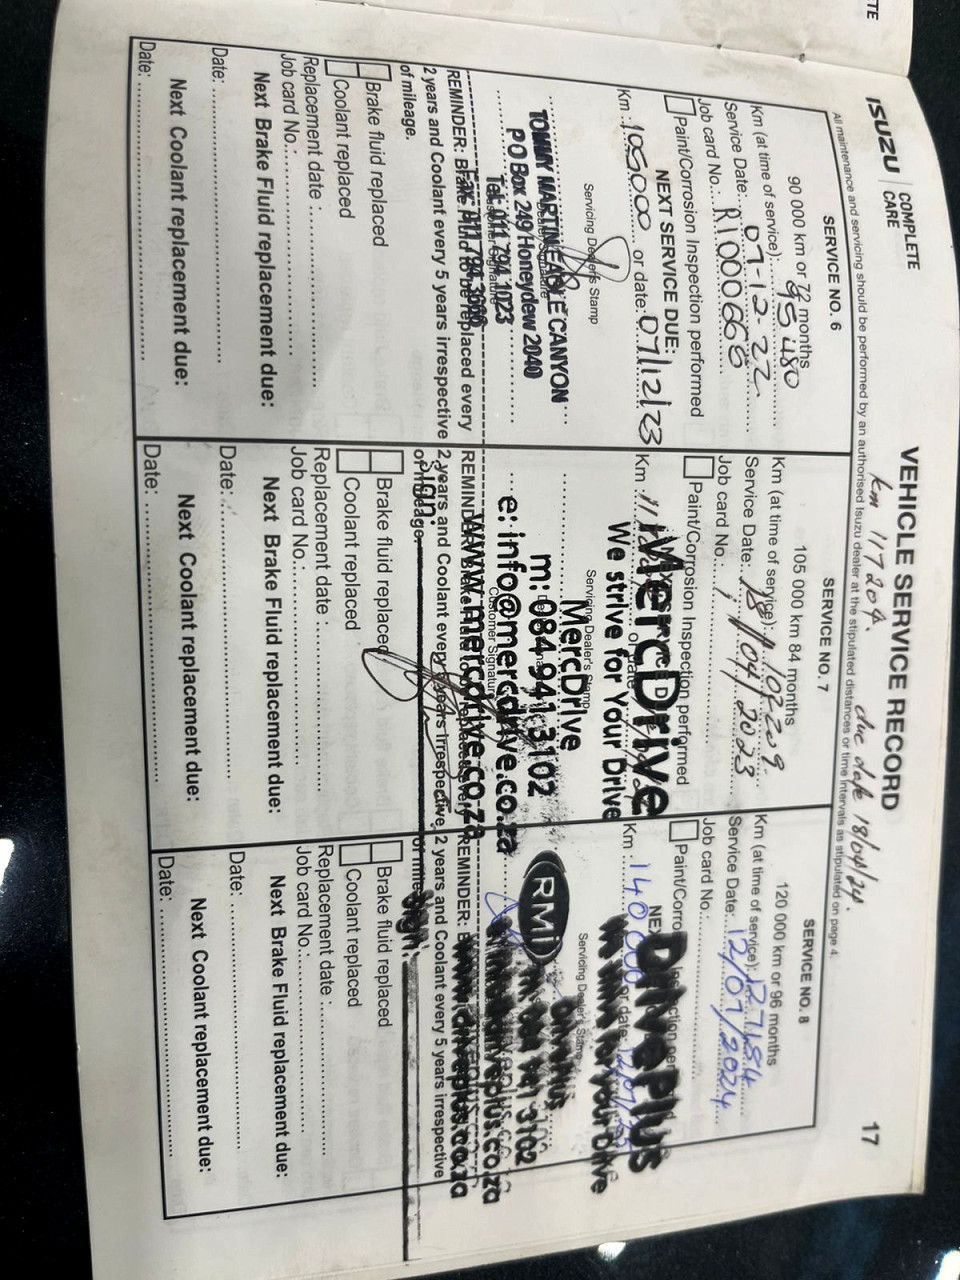 TE
ISUZU | COMPLETE CARE
VEHICLE SERVICE RECORD
17
km 117209. due date 18/04/24.
All maintenance and servicing should be performed by an authorised Isuzu dealer at the stipulated distances or time intervals as stipulated on page 4.
SERVICE NO. 6
90 000 km or 72 months
Km (at time of service): 95480
Service Date: 07-12-22
Job card No.: R1000668
Paint/Corrosion Inspection performed
NEXT SERVICE DUE:
Km: 105000 or date: 07/12/23
Servicing Dealer's Stamp
TOMMY MARTIN EAGLE CANYON
PO Box 249 Honeydew 2040
Tel: 011 794 1023
Fax: 011 794 3600
REMINDER: Brake Fluid to be replaced every
2 years and Coolant every 5 years irrespective
of mileage.
Brake fluid replaced
Coolant replaced
Replacement date :
Job card No.:
Next Brake Fluid replacement due:
Date:
Next Coolant replacement due:
Date:
SERVICE NO. 7
105 000 km 84 months
Km (at time of service): 102209.
Service Date: 18/04/2023
Job card No.:
Paint/Corrosion Inspection performed
Km
MercDrive
We strive for Your Drive
Servicing Dealer's Stamp
MercDrive
m: 084 941 3102
e: info@mercdrive.co.za
Customer Signature
www.mercdrive.co.za
REMINDER:
2 years and Coolant every 5 years irrespective
of mileage.
Sign:
Brake fluid replaced
Coolant replaced
Replacement date :
Job card No.:
Next Brake Fluid replacement due:
Date:
Next Coolant replacement due:
Date:
SERVICE NO. 8
120 000 km or 96 months
Km (at time of service): 127184
Service Date: 12/07/2024
Job card No.:
Paint/Corro
Km: 140 000 or date:
DrivePlus
Your Drive
Servicing Dealer's Stamp
RMI
3102
REMINDER:
2 years and Coolant every 5 years irrespective
Sign:
Brake fluid replaced
Coolant replaced
Replacement date :
Job card No.:
Next Brake Fluid replacement due:
Date:
Next Coolant replacement due:
Date: